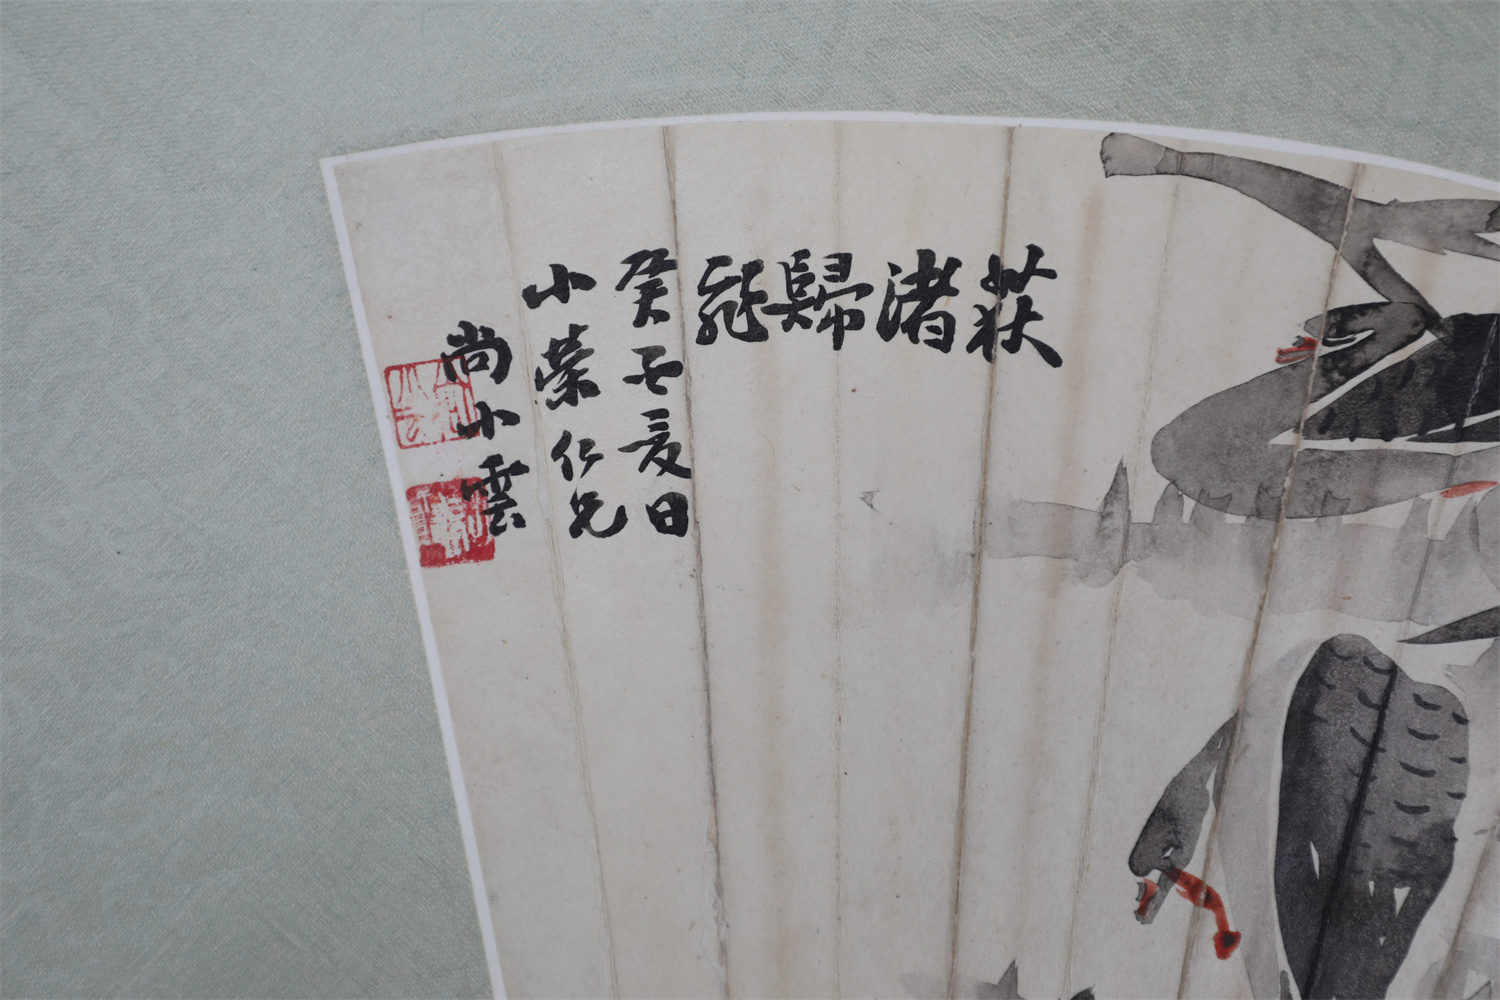 荻渚歸飛
癸夏日
小榮仁兄
尚小雲